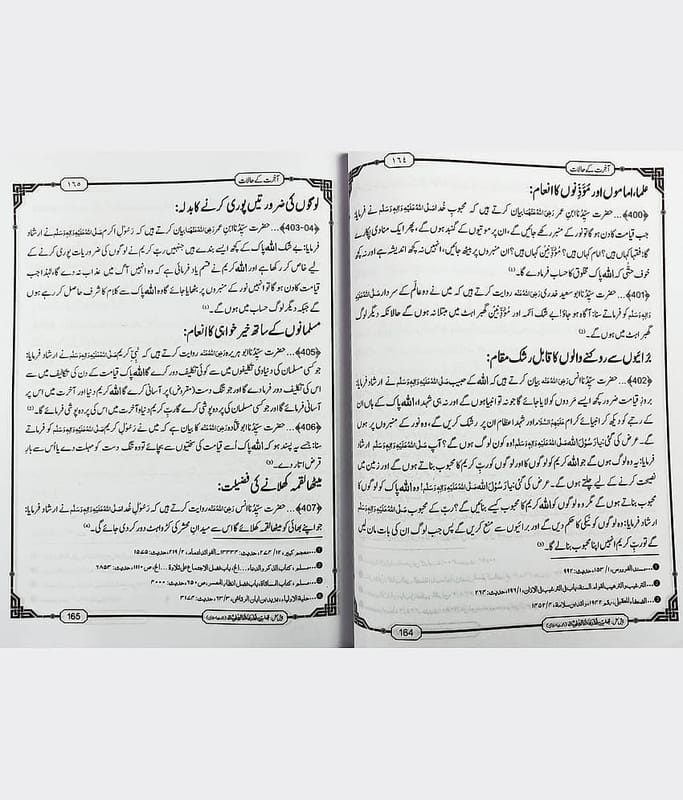 آخرت کے حالات
١٦٤
علما، اماموں اور مؤذنوں کا انعام:
﴿400﴾... حضرت سیِّدُنا ابنِ عمر رَضِیَ اللہُ عَنْہُمَا بیان کرتے ہیں کہ محبوبِ خدا صَلَّی اللہُ عَلَیْہِ وَاٰلِہٖ وَسَلَّم نے فرمایا:
جب قیامت کا دن ہو گا تو نور کے منبر رکھے جائیں گے، ان پر موتیوں کے گنبد ہوں گے، پھر ایک منادی پکارے
گا: فقہا کہاں ہیں؟ امام کہاں ہیں؟ مؤذنین کہاں ہیں؟ ان منبروں پر بیٹھ جائیں، انہیں نہ کچھ اندیشہ ہے اور نہ کچھ
خوف حتّٰی کہ اللہ پاک مخلوق کا حساب فرمادے گا۔(1)
﴿401﴾... حضرت سیِّدُنا ابو سعید خدری رَضِیَ اللہُ عَنْہُ روایت کرتے ہیں کہ میں نے دوعالَم کے سردار صَلَّی اللہُ عَلَیْہِ وَاٰلِہٖ
وَسَلَّم کو فرماتے سنا: آگاہ ہو جاؤ! بے شک ائمہ اور مؤذنین گھبراہٹ میں مبتلا نہ ہوں گے حالانکہ دیگر لوگ
گھبراہٹ میں ہوں گے۔
برائیوں سے روکنے والوں کا قابِل رشک مقام:
﴿402﴾... حضرت سیِّدُنا انس رَضِیَ اللہُ عَنْہُ بیان کرتے ہیں کہ اللہ کے حبیب صَلَّی اللہُ عَلَیْہِ وَاٰلِہٖ وَسَلَّم نے ارشاد فرمایا:
بروزِ قیامت ضرور کچھ ایسے مَردوں کو لایا جائے گا جو نہ تو انبیا ہوں گے اور نہ ہی شہدا، اللہ پاک کے ہاں ان
کے رتبے کو دیکھ کر انبیائے کرام عَلَیْہِمُ السَّلَام اور شہدا عظام ان پر رشک کریں گے، وہ نور کے منبروں پر ہوں
گے۔ عرض کی گئی: یا رَسُوْلَ اللہ صَلَّی اللہُ عَلَیْہِ وَاٰلِہٖ وَسَلَّم! وہ کون لوگ ہوں گے؟ آپ صَلَّی اللہُ عَلَیْہِ وَاٰلِہٖ وَسَلَّم نے ارشاد
فرمایا: یہ وہ لوگ ہوں گے جو اللہ کریم کو لوگوں کا اور لوگوں کو ربِّ کریم کا محبوب بناتے ہوں گے اور زمین میں
نصیحت کرنے کے لیے چلتے ہوں گے۔ عرض کی گئی: یا رَسُوْلَ اللہ صَلَّی اللہُ عَلَیْہِ وَاٰلِہٖ وَسَلَّم! وہ اللہ پاک کو لوگوں کا
محبوب بناتے ہوں گے مگر وہ لوگوں کو اللہ کریم کا محبوب کیسے بنائیں گے؟ رب کے محبوب صَلَّی اللہُ عَلَیْہِ وَاٰلِہٖ وَسَلَّم نے
ارشاد فرمایا: وہ لوگوں کو نیکی کا حکم دیں گے اور برائیوں سے منع کریں گے پس جب لوگ ان کی بات مان لیں
گے تو ربِّ کریم انہیں اپنا محبوب بنالے گا۔(3)
164
آخرت کے حالات
١٦٥
لوگوں کی ضرورتیں پوری کرنے کا بدلہ:
﴿403-04﴾... حضرت سیِّدُنا ابنِ عمر رَضِیَ اللہُ عَنْہُمَا بیان کرتے ہیں کہ رَسُولِ اکرم صَلَّی اللہُ عَلَیْہِ وَاٰلِہٖ وَسَلَّم نے ارشاد
فرمایا: بے شک اللہ پاک کے کچھ ایسے بندے ہیں جنہیں ربِّ کریم نے لوگوں کی ضروریات پوری کرنے کے
لیے خاص کر رکھا ہے اور اللہ کریم نے قسم یاد فرمائی ہے کہ وہ انہیں آگ میں عذاب نہ دے گا، لہٰذا جب
قیامت کا دن ہو گا تو انہیں نور کے منبروں پر بٹھایا جائے گا وہ اللہ پاک سے کلام کا شرف حاصل کر رہے ہوں
گے جبکہ دیگر لوگ حساب میں ہوں گے۔(1)
مسلمانوں کے ساتھ خیر خواہی کا انعام:
﴿405﴾... حضرت سیِّدُنا ابو ہریرہ رَضِیَ اللہُ عَنْہُ روایت کرتے ہیں کہ نبیِّ کریم صَلَّی اللہُ عَلَیْہِ وَاٰلِہٖ وَسَلَّم نے ارشاد فرمایا:
جو کسی مسلمان کی دنیاوی تکلیفوں میں سے کوئی تکلیف دور کرے گا اللہ پاک قیامت کے دن کی تکالیف میں سے
اس کی تکلیف دور فرمادے گا اور جو تنگ دست (مقروض) پر آسانی کرے گا اللہ کریم دنیا اور آخرت میں اس پر
آسانی فرمائے گا اور جو کسی مسلمان کی پردہ پوشی کرے گا ربِّ کریم دنیا و آخرت میں اس کی پردہ پوشی فرمائے گا۔(2)
﴿406﴾... حضرت سیِّدُنا ابو قتادہ رَضِیَ اللہُ عَنْہُ کا بیان ہے کہ میں نے رسولِ کریم صَلَّی اللہُ عَلَیْہِ وَاٰلِہٖ وَسَلَّم کو فرماتے
سنا: جسے یہ پسند ہو کہ اللہ پاک اُسے قیامت کی سختیوں سے بچائے تو وہ تنگ دست کو مہلت دے یا اس سے بارِ
قرض اتار دے۔(3)
میٹھا لقمہ کھلانے کی فضیلت:
﴿407﴾... حضرت سیِّدُنا انس رَضِیَ اللہُ عَنْہُ روایت کرتے ہیں کہ رَسُولِ خدا صَلَّی اللہُ عَلَیْہِ وَاٰلِہٖ وَسَلَّم نے ارشاد فرمایا:
جو اپنے بھائی کو میٹھا لقمہ کھلائے گا اس سے میدانِ محشر کی کڑواہٹ دور کر دی جائے گی۔
165